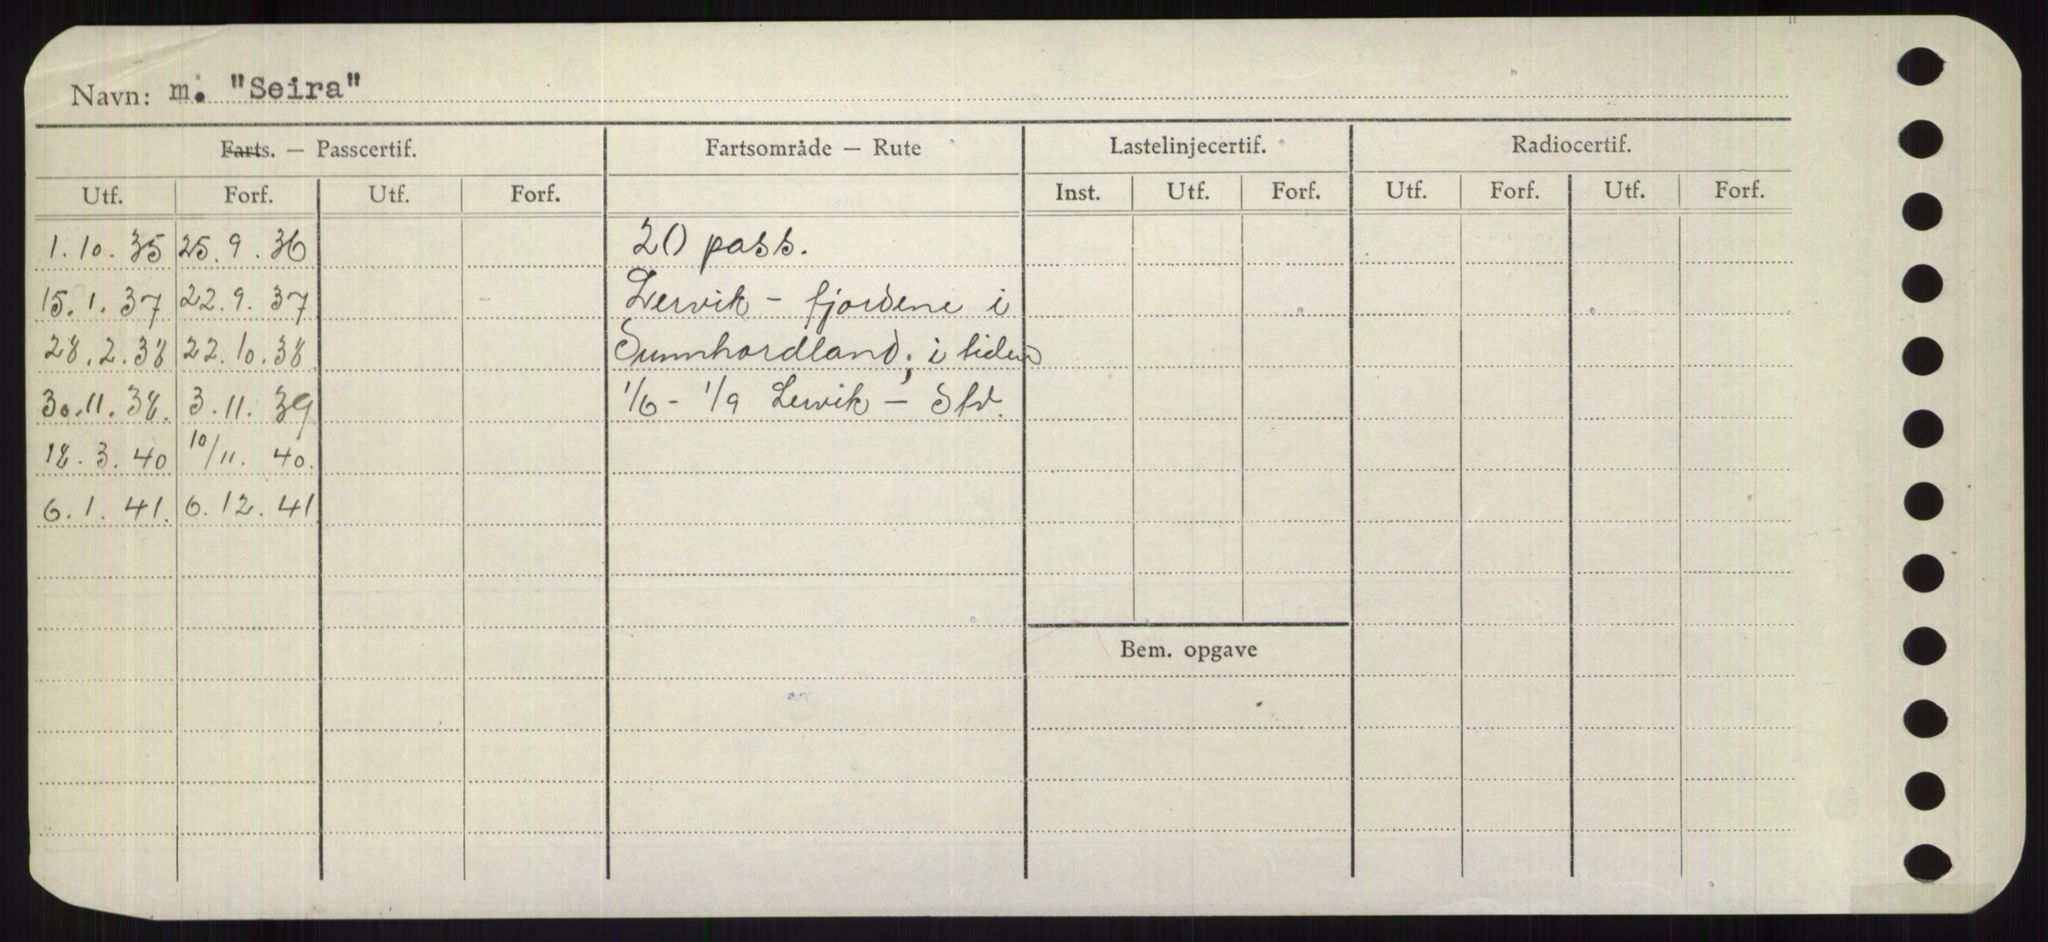 Navn: m. "Seira"
Farts. — Passcertif. Fartsområde — Rute Lastelinjecertif. Radiocertif.
Utf. Forf. Utf. Forf. Inst. Utf. Forf. Utf. Forf. Utf. Forf.
1.10.35 25.9.36 20 pass.
15.1.37 22.9.37 Lervik - fjordene i
28.2.38 22.10.38 Sunnhordland; i tiden
30.11.38. 3.11.39 1/6 - 1/9 Lervik -
18.3.40 10/11.40.
6.1.41. 6.12.41
Bem. opgave